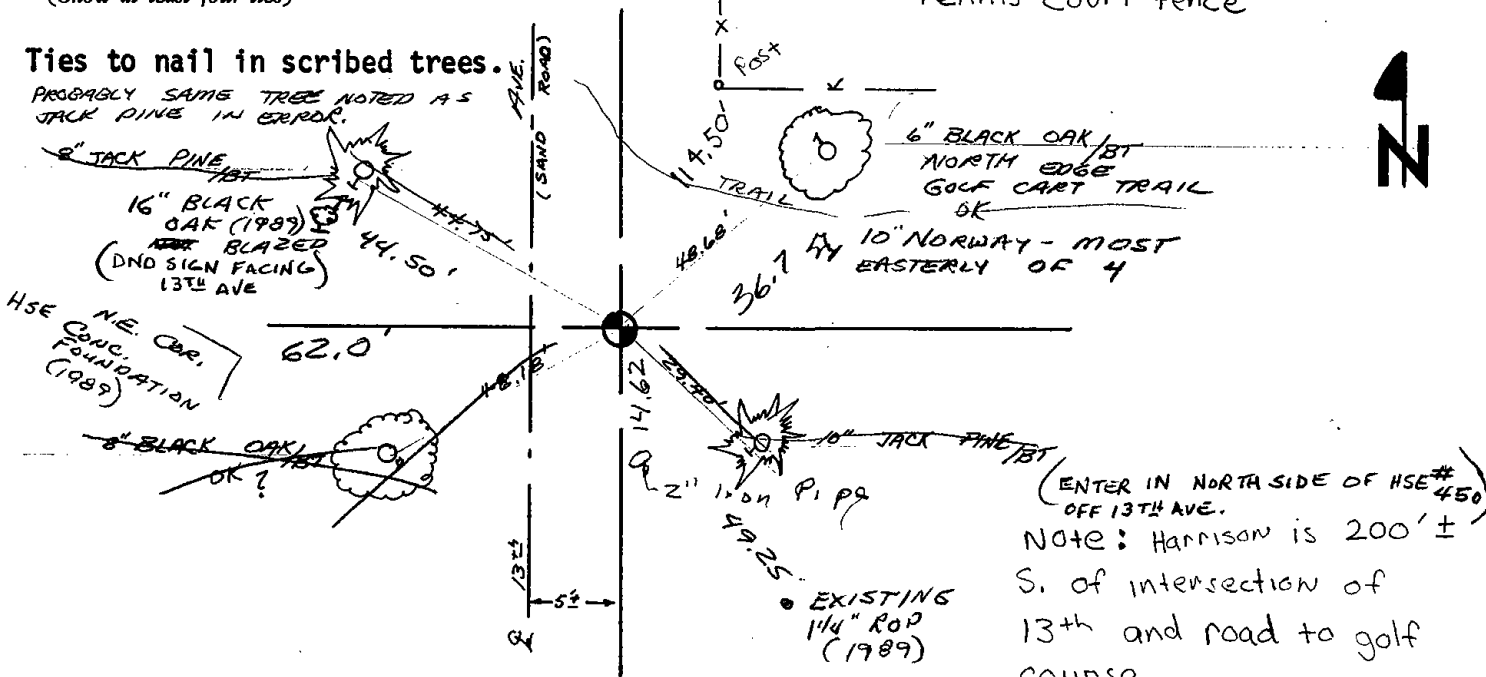 Tennis court fence
Ties to nail in scribed trees.
PROBABLY SAME TREE NOTED AS
JACK PINE IN ERROR.
8" JACK PINE/BT
16" BLACK
OAK (1989)
BLAZED
(DND SIGN FACING)
13TH AVE
44.75'
44.50'
AVE.
(SAND ROAD)
Post
114.50'
TRAIL
6" BLACK OAK/BT
NORTH EDGE
GOLF CART TRAIL
OK
N
48.68'
36.7
10" NORWAY - MOST
EASTERLY OF 4
HSE N.E. COR.
CONC.
FOUNDATION
(1989)
62.0'
48.18'
8" BLACK OAK/BT
OK?
14.62
2" Iron Pipe
29.40'
10" JACK PINE/BT
49.25
EXISTING
1 1/4" ROP
(1989)
13TH
5'±
(ENTER IN NORTH SIDE OF HSE #450)
OFF 13TH AVE.
Note: Harrison is 200' ±
S. of intersection of
13th and road to golf